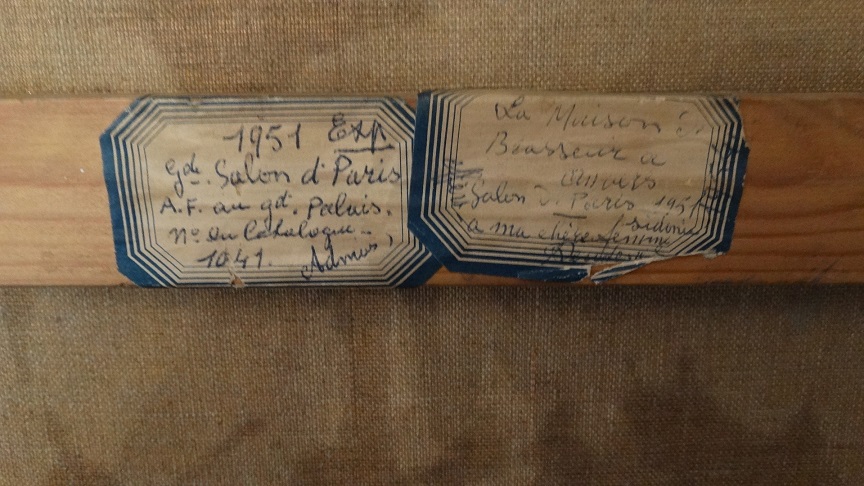 1951 Exp
Gde. Salon d'Paris
A.F. au gd. Palais.
N° du Catalogue -
1041. Admis,
La Maison
Brasseur a
Salon d. Paris 1951
a ma chère femme Sidonie